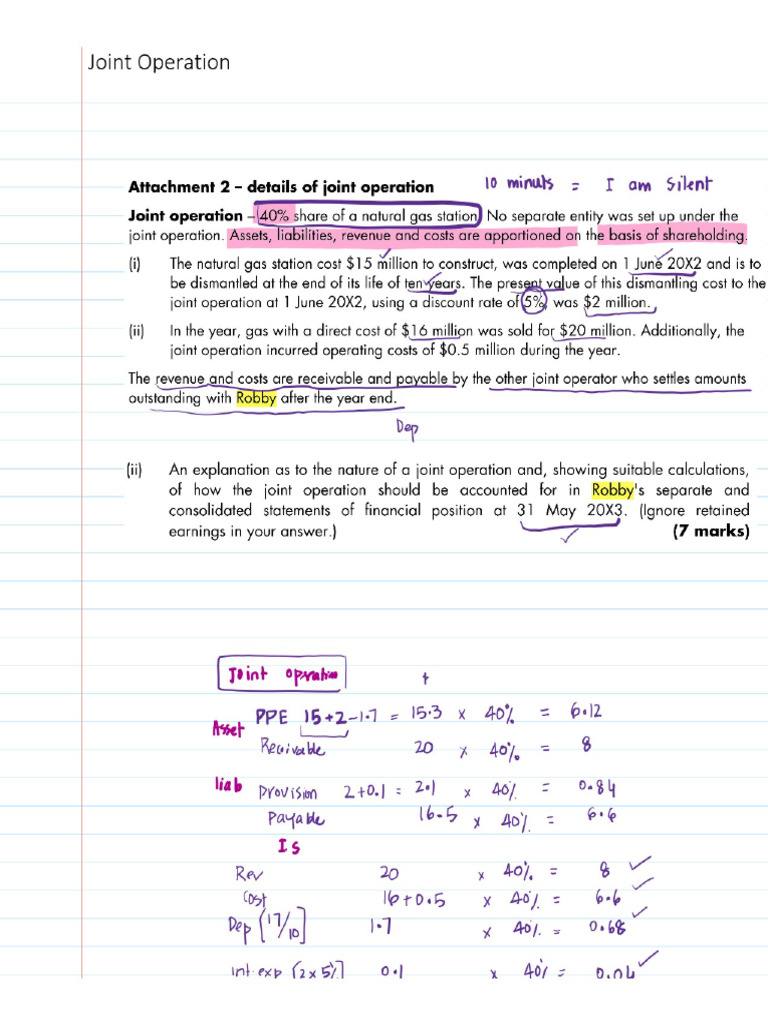 Joint Operation
Attachment 2 – details of joint operation 10 minuts = I am Silent
Joint operation – 40% share of a natural gas station. No separate entity was set up under the
joint operation. Assets, liabilities, revenue and costs are apportioned on the basis of shareholding.
(i) The natural gas station cost $15 million to construct, was completed on 1 June 20X2 and is to
be dismantled at the end of its life of ten years. The present value of this dismantling cost to the
joint operation at 1 June 20X2, using a discount rate of 5%, was $2 million.
(ii) In the year, gas with a direct cost of $16 million was sold for $20 million. Additionally, the
joint operation incurred operating costs of $0.5 million during the year.
The revenue and costs are receivable and payable by the other joint operator who settles amounts
outstanding with Robby after the year end.
Dep
(ii) An explanation as to the nature of a joint operation and, showing suitable calculations,
of how the joint operation should be accounted for in Robby's separate and
consolidated statements of financial position at 31 May 20X3. (Ignore retained
earnings in your answer.) (7 marks)
Joint opration
Asset PPE 15+2-1.7 = 15.3 x 40% = 6.12
Receivable 20 x 40% = 8
liab provision 2+0.1 = 2.1 x 40% = 0.84
Payable 16.5 x 40% = 6.6
Is
Rev 20 x 40% = 8
Cost 16+0.5 x 40% = 6.6
Dep [17/10] 1.7 x 40% = 0.68
int.exp [2x5%] 0.1 x 40% = 0.04